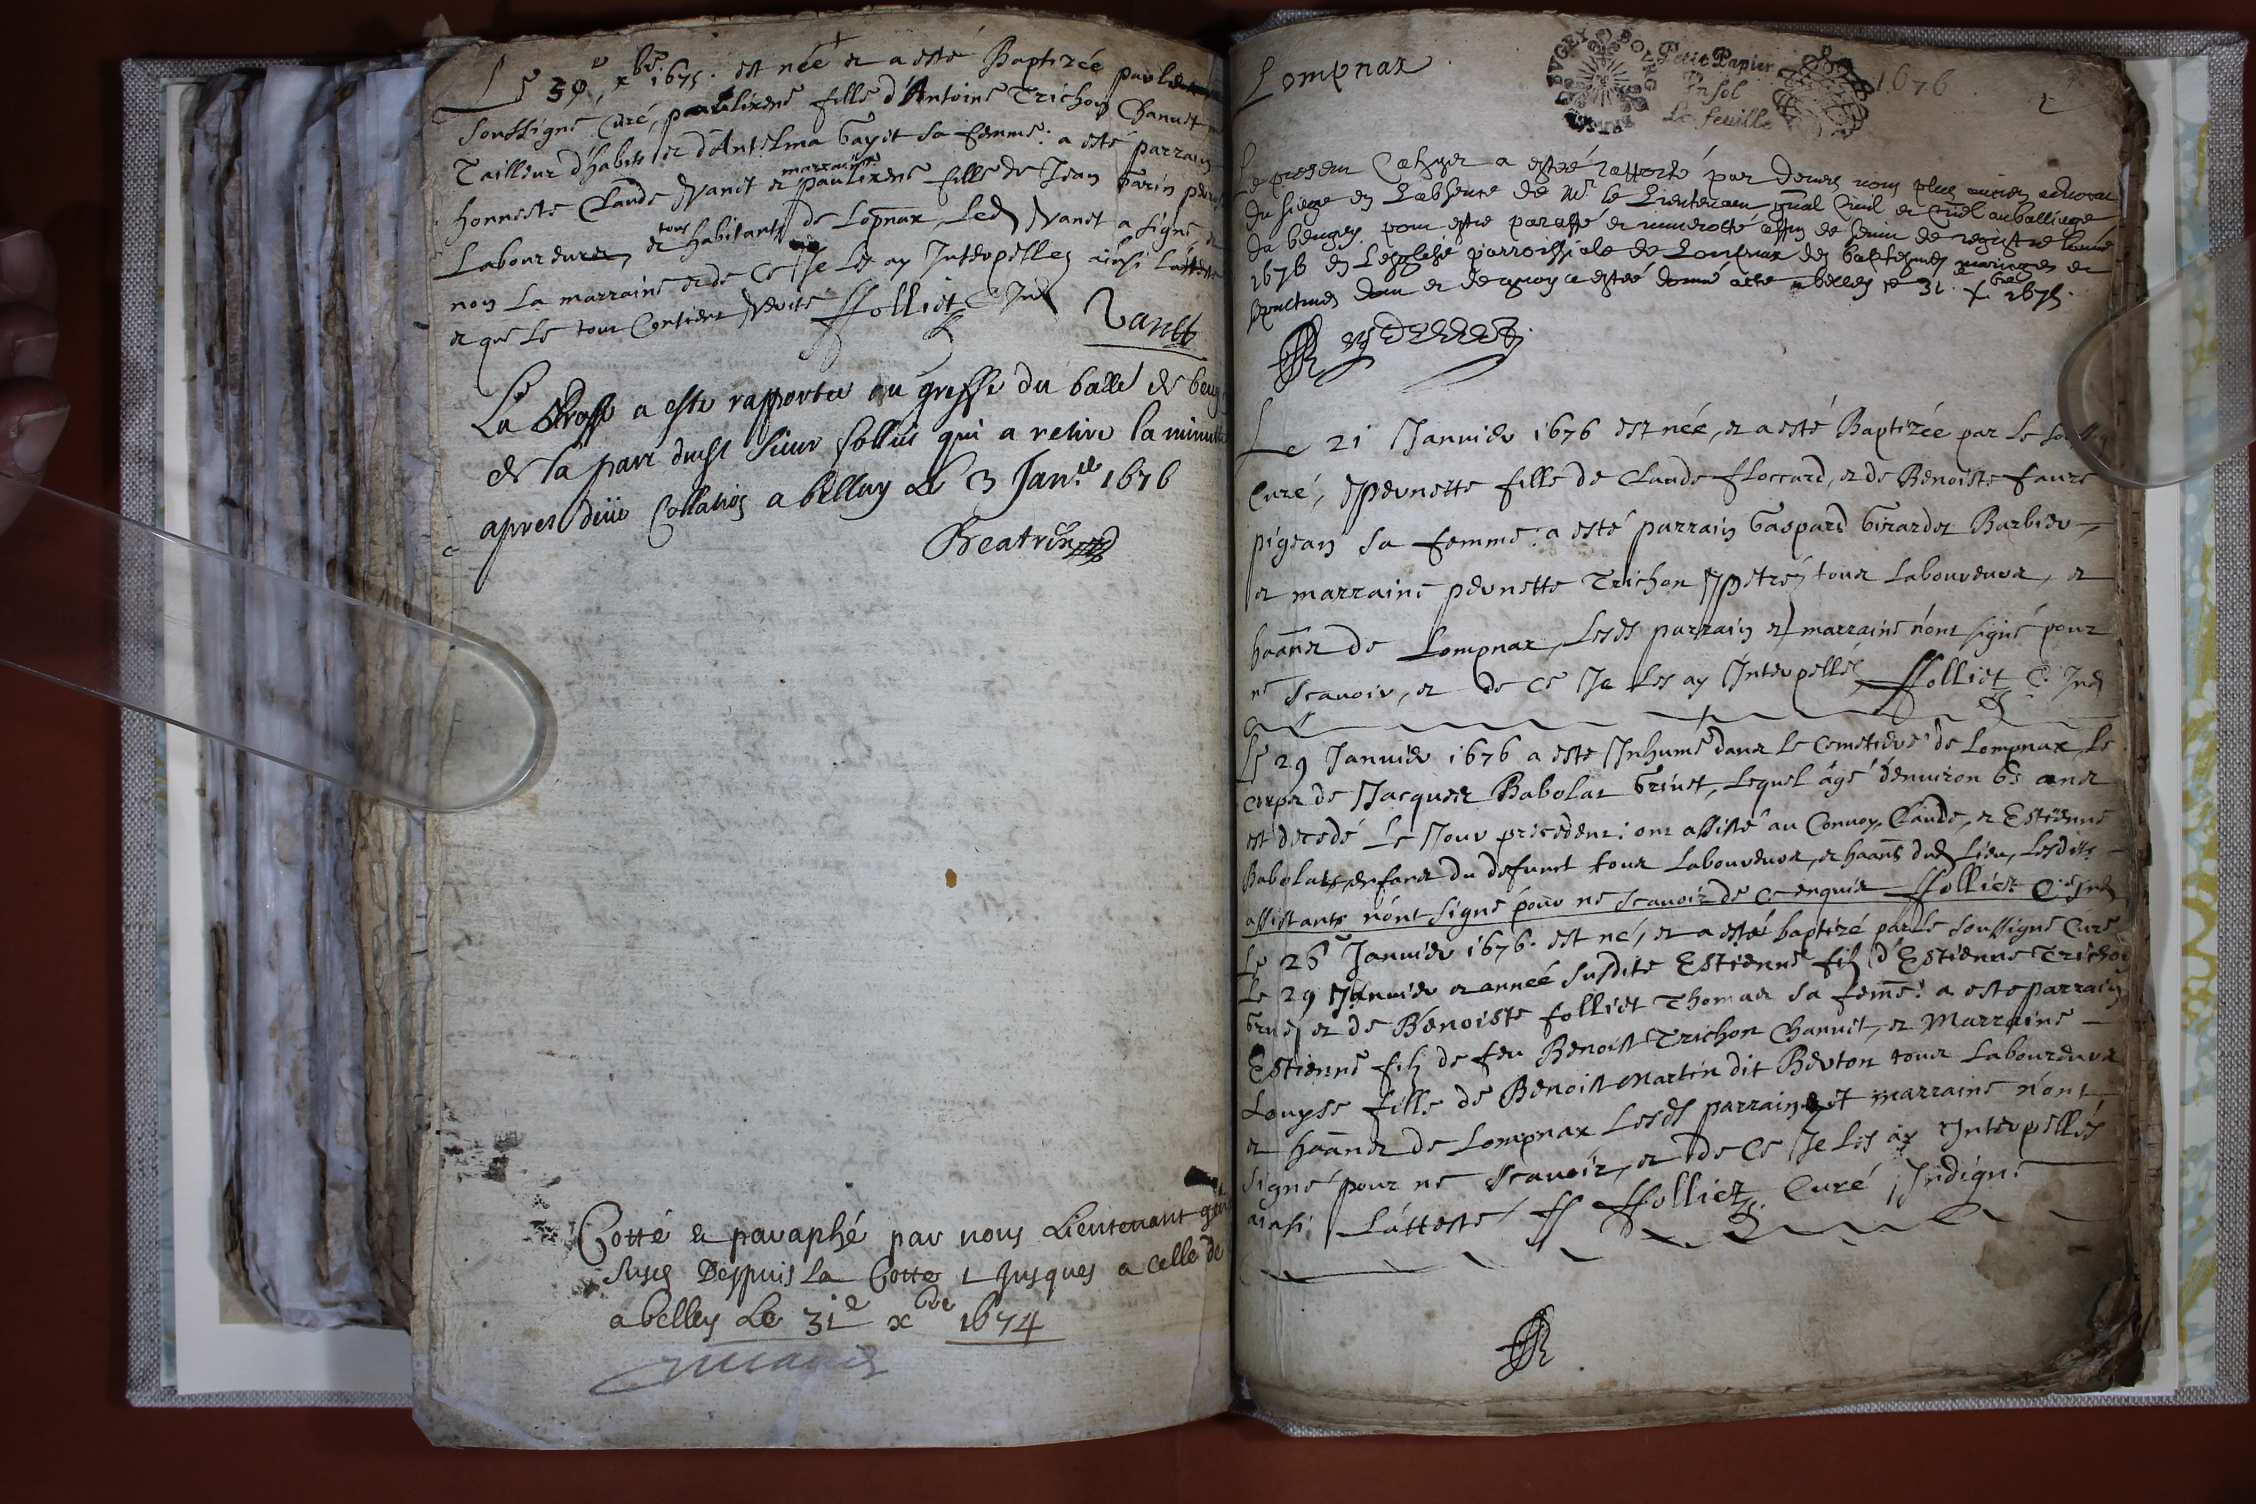 Le 30e xbre 1675. est née et a esté Baptizée par le
soussigné Curé, paulixene fille d'Antoine Trichon Chanuet
Tailleur d'habits et d'Antelma Gayit sa femme: a esté parrain
honneste Claude Vanet et marraine paulixene fille de Jean Garin
Laboureurs, et tous habitants de Lopnax, Led Vanet a signé et
non La marraine et de ce Je Le ay Interpellez ainsi L'atteste
et que Le tout Contient Verité ffolliet C. Ind
Vanet
La grosse a este rapportee au greffe du balle de beugey
de la part dudt sieur folliet qui a retire la minutte
apres deüe Collation a belley Le 3 Janer 1676
Beatrix
Cotté et paraphé par nous Lieutenant gnal
susd Deppuis La Cotte 1 Jusques a celle de
a belley Le 31e xbre 1674
Lompnax.
BVGEY BOVRG
Petit Papier
Un sol
La feuille
1676
Le present Cahyer a estéé rapporté par devers nous plus ancien advocat
du siege en L'absence de Mr le Lieutenant gnal Civil et Criel au balliage
du beugey pour estre paraffé et numerotté affin de servir de registre L'année
1676 en L'esglise parroissiale de Lompnax des baptesmes mariages et
mortuaires dont et de quoy a estéé donné acte a belley ce 31 xbre 1675.
Le 21 Januier 1676 est née, et a esté Baptizée par Le soussig
Curé, Pernette fille de Claude ffloccard, et de Benoiste faure
pigean sa femme: a esté parrain Gaspard Girardet Barbier
et marraine pernette Trichon Petré tous Laboureurs, et
haans de Lompnax, Lesds parrain et marraine n'ont signé pour
ne scauoir, et de ce Je Les ay Interpellé, ffolliet C. Ind
Le 29 Januier 1676 a este Inhumé dans le cemetiere de Lompnax, Le
corps de Jacques Babolat Grinet, Lequel âgé d'enuiron 65 ans
est decedé Le Jour precedent: ont assisté au Conuoy, Claude, et Estienne
Babolats, enfans du defunct tous Laboureurs, et haans dud Lieu, Lesdits
assistants n'ont signé pour ne scauoir de ce enquis ffolliet C. Ind
Le 26 Januier 1676. est né, et a esté baptizé par Le soussigné Curé
Le 29 Januier et année susdite Estienne filz d'Estienne Trichon
Grué, et de Benoiste folliet Thomas sa feme: a esté parrain
Estienne filz de feu Benoist Trichon Chanuit, et Marraine
Louyse fille de Benoist Martin dit Berton tous Laboureurs
et haans de Lompnax Lesds parrain et marraine n'ont
signé pour ne scauoir, et de ce Je les ay Interpellés
ainsi L'atteste ff ffolliet Curé Indigne